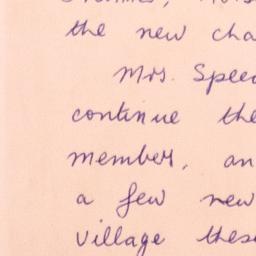 the new cha
Mrs. Speed
continue the
member, an
a few new
village these